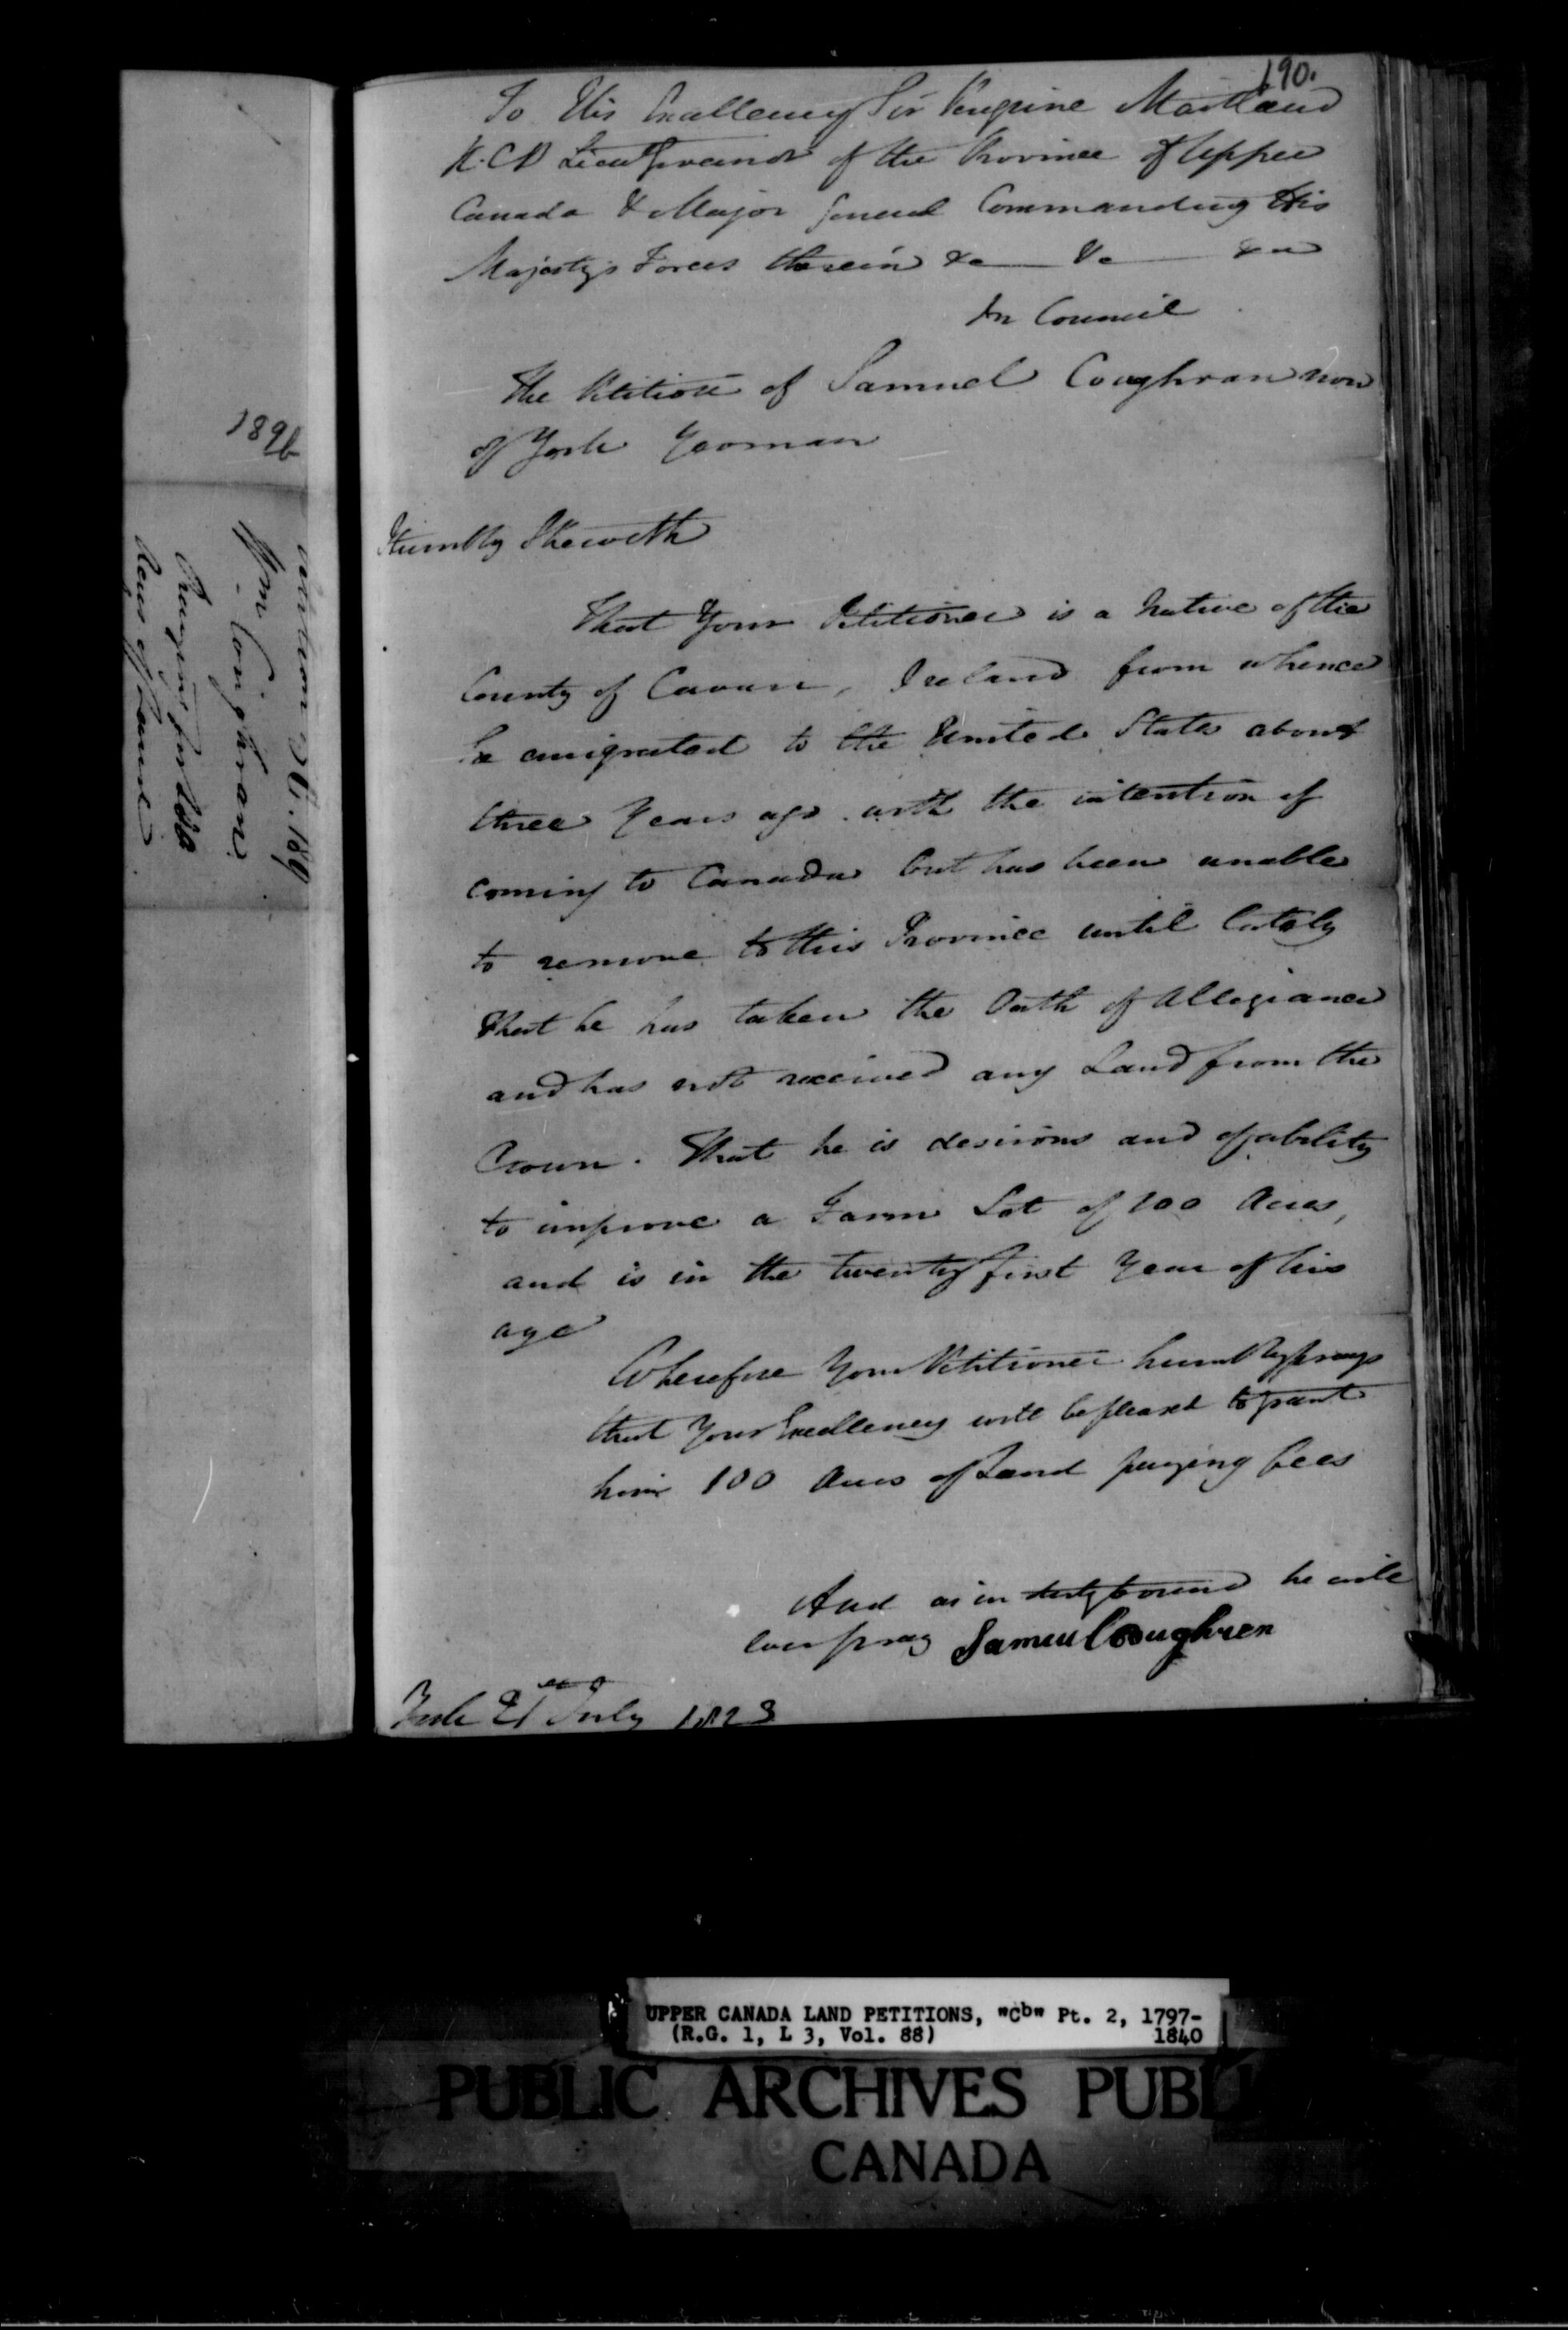 190.
To His Excellency Sir Peregrine Maitland
K.C.B Lieut Governor of the Province of Upper
Canada & Major General Commanding His
Majesty's Forces therein &c &c &c
In Council
The Petition of Samuel Coughran now
of York Yeoman
Humbly Sheweth
That Your Petitioner is a Native of the
County of Cavan, Ireland from whence
he emigrated to the United States about
three Years ago with the intention of
coming to Canada but has been unable
to remove to this Province until lately
That he has taken the Oath of Allegiance
and has not received any Land from the
Crown. That he is desirous and of ability
to improve a Farm Lot of 100 Acres,
and is in the twenty first Year of his
age
Wherefore Your Petitioner humbly prays
that Your Excellency will be pleased to grant
him 100 Acres of Land paying fees
And as in duty bound he will
ever pray Samuel Coughren
York 21st July 1823
189b
189
Wm Coughran
Praying for
Acres of Land
UPPER CANADA LAND PETITIONS, "Cb" Pt. 2, 1797-
(R.G. 1, L 3, Vol. 88) 1840
PUBLIC ARCHIVES PUBLI
CANADA